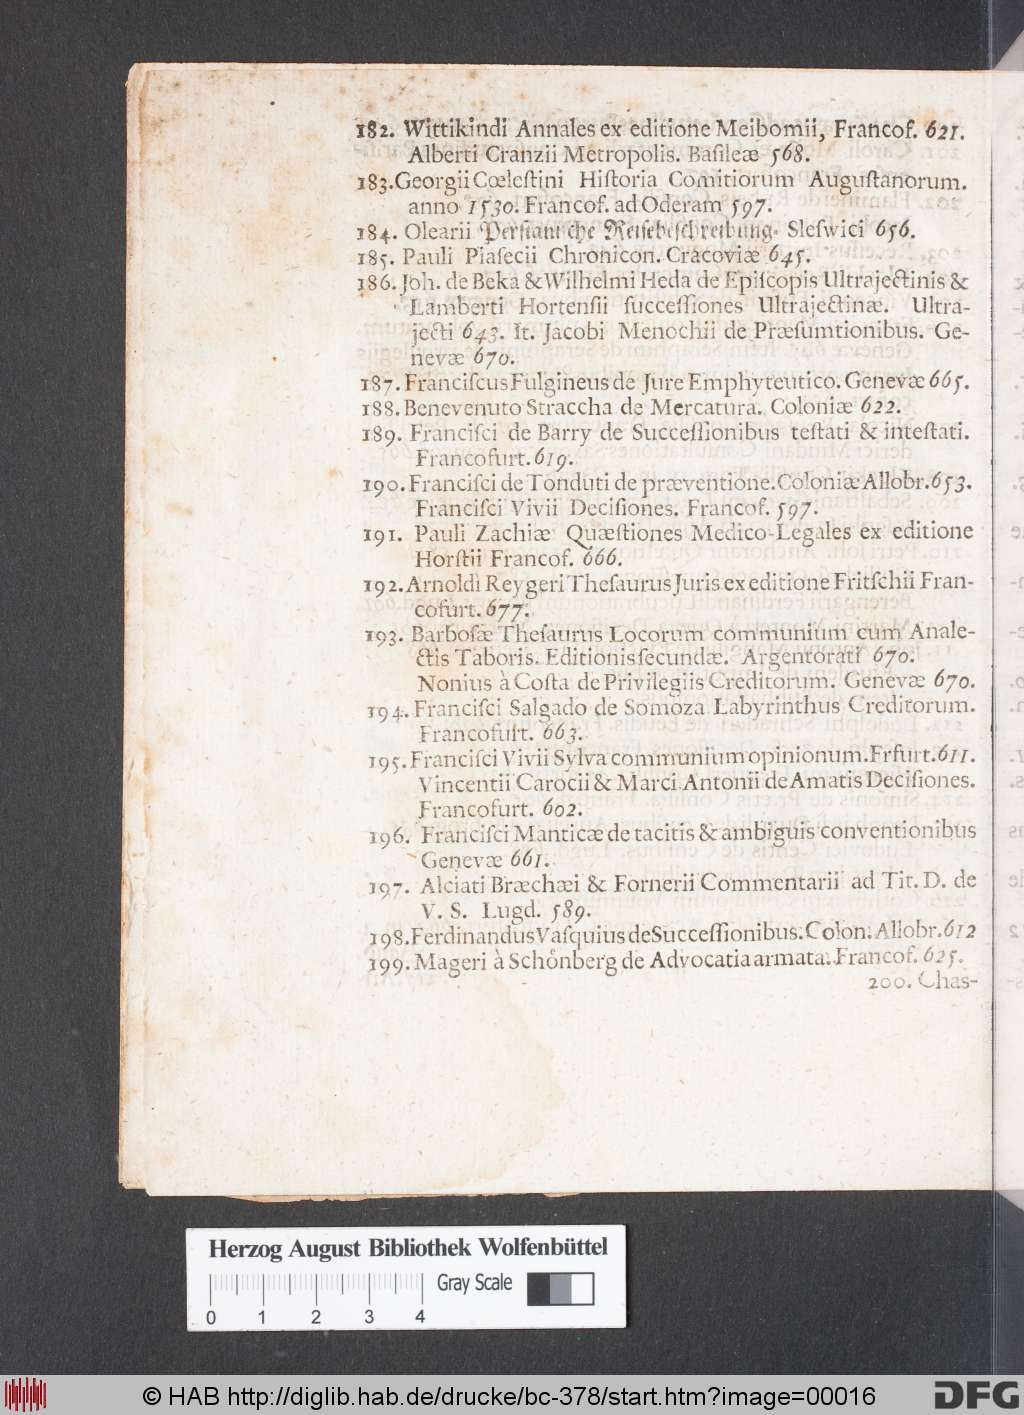 182. Wittikindi Annales ex editione Meibomii, Francof. 621.
Alberti Cranzii Metropolis. Baſileæ 568.
183. Georgii Cœleſtini Hiſtoria Comitiorum Auguſtanorum.
anno 1530. Francof. ad Oderam 597.
184. Olearii Perſianiſche Reiſebeſchreibung. Sleſwici 656.
185. Pauli Piaſecii Chronicon. Cracoviæ 645.
186. Joh. de Beka & Wilhelmi Heda de Epiſcopis Ultrajectinis &
Lamberti Hortenſii ſucceſſiones Ultrajectinæ. Ultra-
jecti 643. It. Jacobi Menochii de Præſumtionibus. Ge-
nevæ 670.
187. Franciſcus Fulgineus de Jure Emphyteutico. Genevæ 665.
188. Benevenuto Straccha de Mercatura. Coloniæ 622.
189. Franciſci de Barry de Succeſſionibus teſtati & inteſtati.
Francofurt. 619.
190. Franciſci de Tonduti de præventione. Coloniæ Allobr. 653.
Franciſci Vivii Deciſiones. Francof. 597.
191. Pauli Zachiæ Quæſtiones Medico-Legales ex editione
Horſtii Francof. 666.
192. Arnoldi Reygeri Theſaurus Juris ex editione Fritſchii Fran-
cofurt. 677.
193. Barboſæ Theſaurus Locorum communium cum Anale-
ctis Taboris. Editionis ſecundæ. Argentorati 670.
Nonius à Coſta de Privilegiis Creditorum. Genevæ 670.
194. Franciſci Salgado de Somoza Labyrinthus Creditorum.
Francofurt. 663.
195. Franciſci Vivii Sylva communium opinionum. Erfurt. 611.
Vincentii Carocii & Marci Antonii de Amatis Deciſiones.
Francofurt. 602.
196. Franciſci Manticæ de tacitis & ambiguis conventionibus
Genevæ 661.
197. Alciati Bræchæi & Fornerii Commentarii ad Tit. D. de
V. S. Lugd. 589.
198. Ferdinandus Vaſquius de Succeſſionibus. Colon. Allobr. 612
199. Mageri à Schönberg de Advocatia armata. Francof. 625.
200. Chas-
Herzog August Bibliothek Wolfenbüttel
Gray Scale
0 1 2 3 4
© HAB http://diglib.hab.de/drucke/bc-378/start.htm?image=00016
DFG